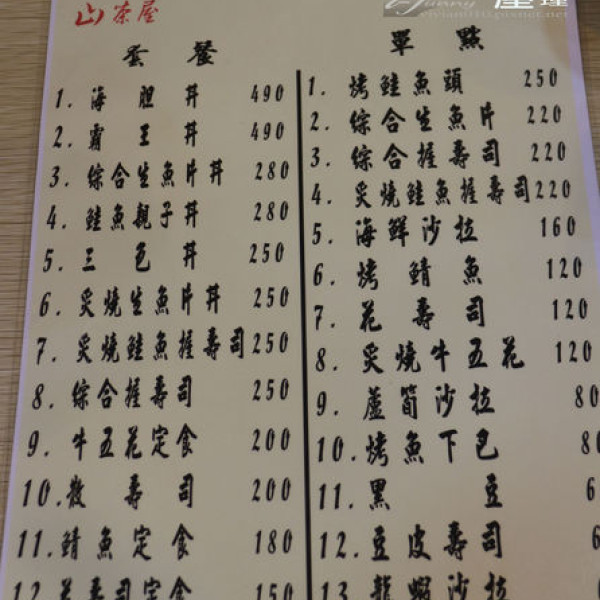 山茶屋
套餐
1. 海胆丼 490
2. 霸王丼 490
3. 綜合生魚片丼 280
4. 鮭魚親子丼 280
5. 三色丼 250
6. 炙燒生魚片丼 250
7. 炙燒鮭魚握壽司 250
8. 綜合握壽司 250
9. 牛五花定食 200
10. 散壽司 200
11. 鯖魚定食 180
12. 花壽司定食 150
單點
1. 烤鮭魚頭 250
2. 綜合生魚片 220
3. 綜合握壽司 220
4. 炙燒鮭魚握壽司 220
5. 海鮮沙拉 160
6. 烤鯖魚 120
7. 花壽司 120
8. 炙燒牛五花 120
9. 蘆筍沙拉 80
10. 烤魚下巴 80
11. 黑豆 6
12. 豆皮壽司 6
13. 龍蝦沙拉